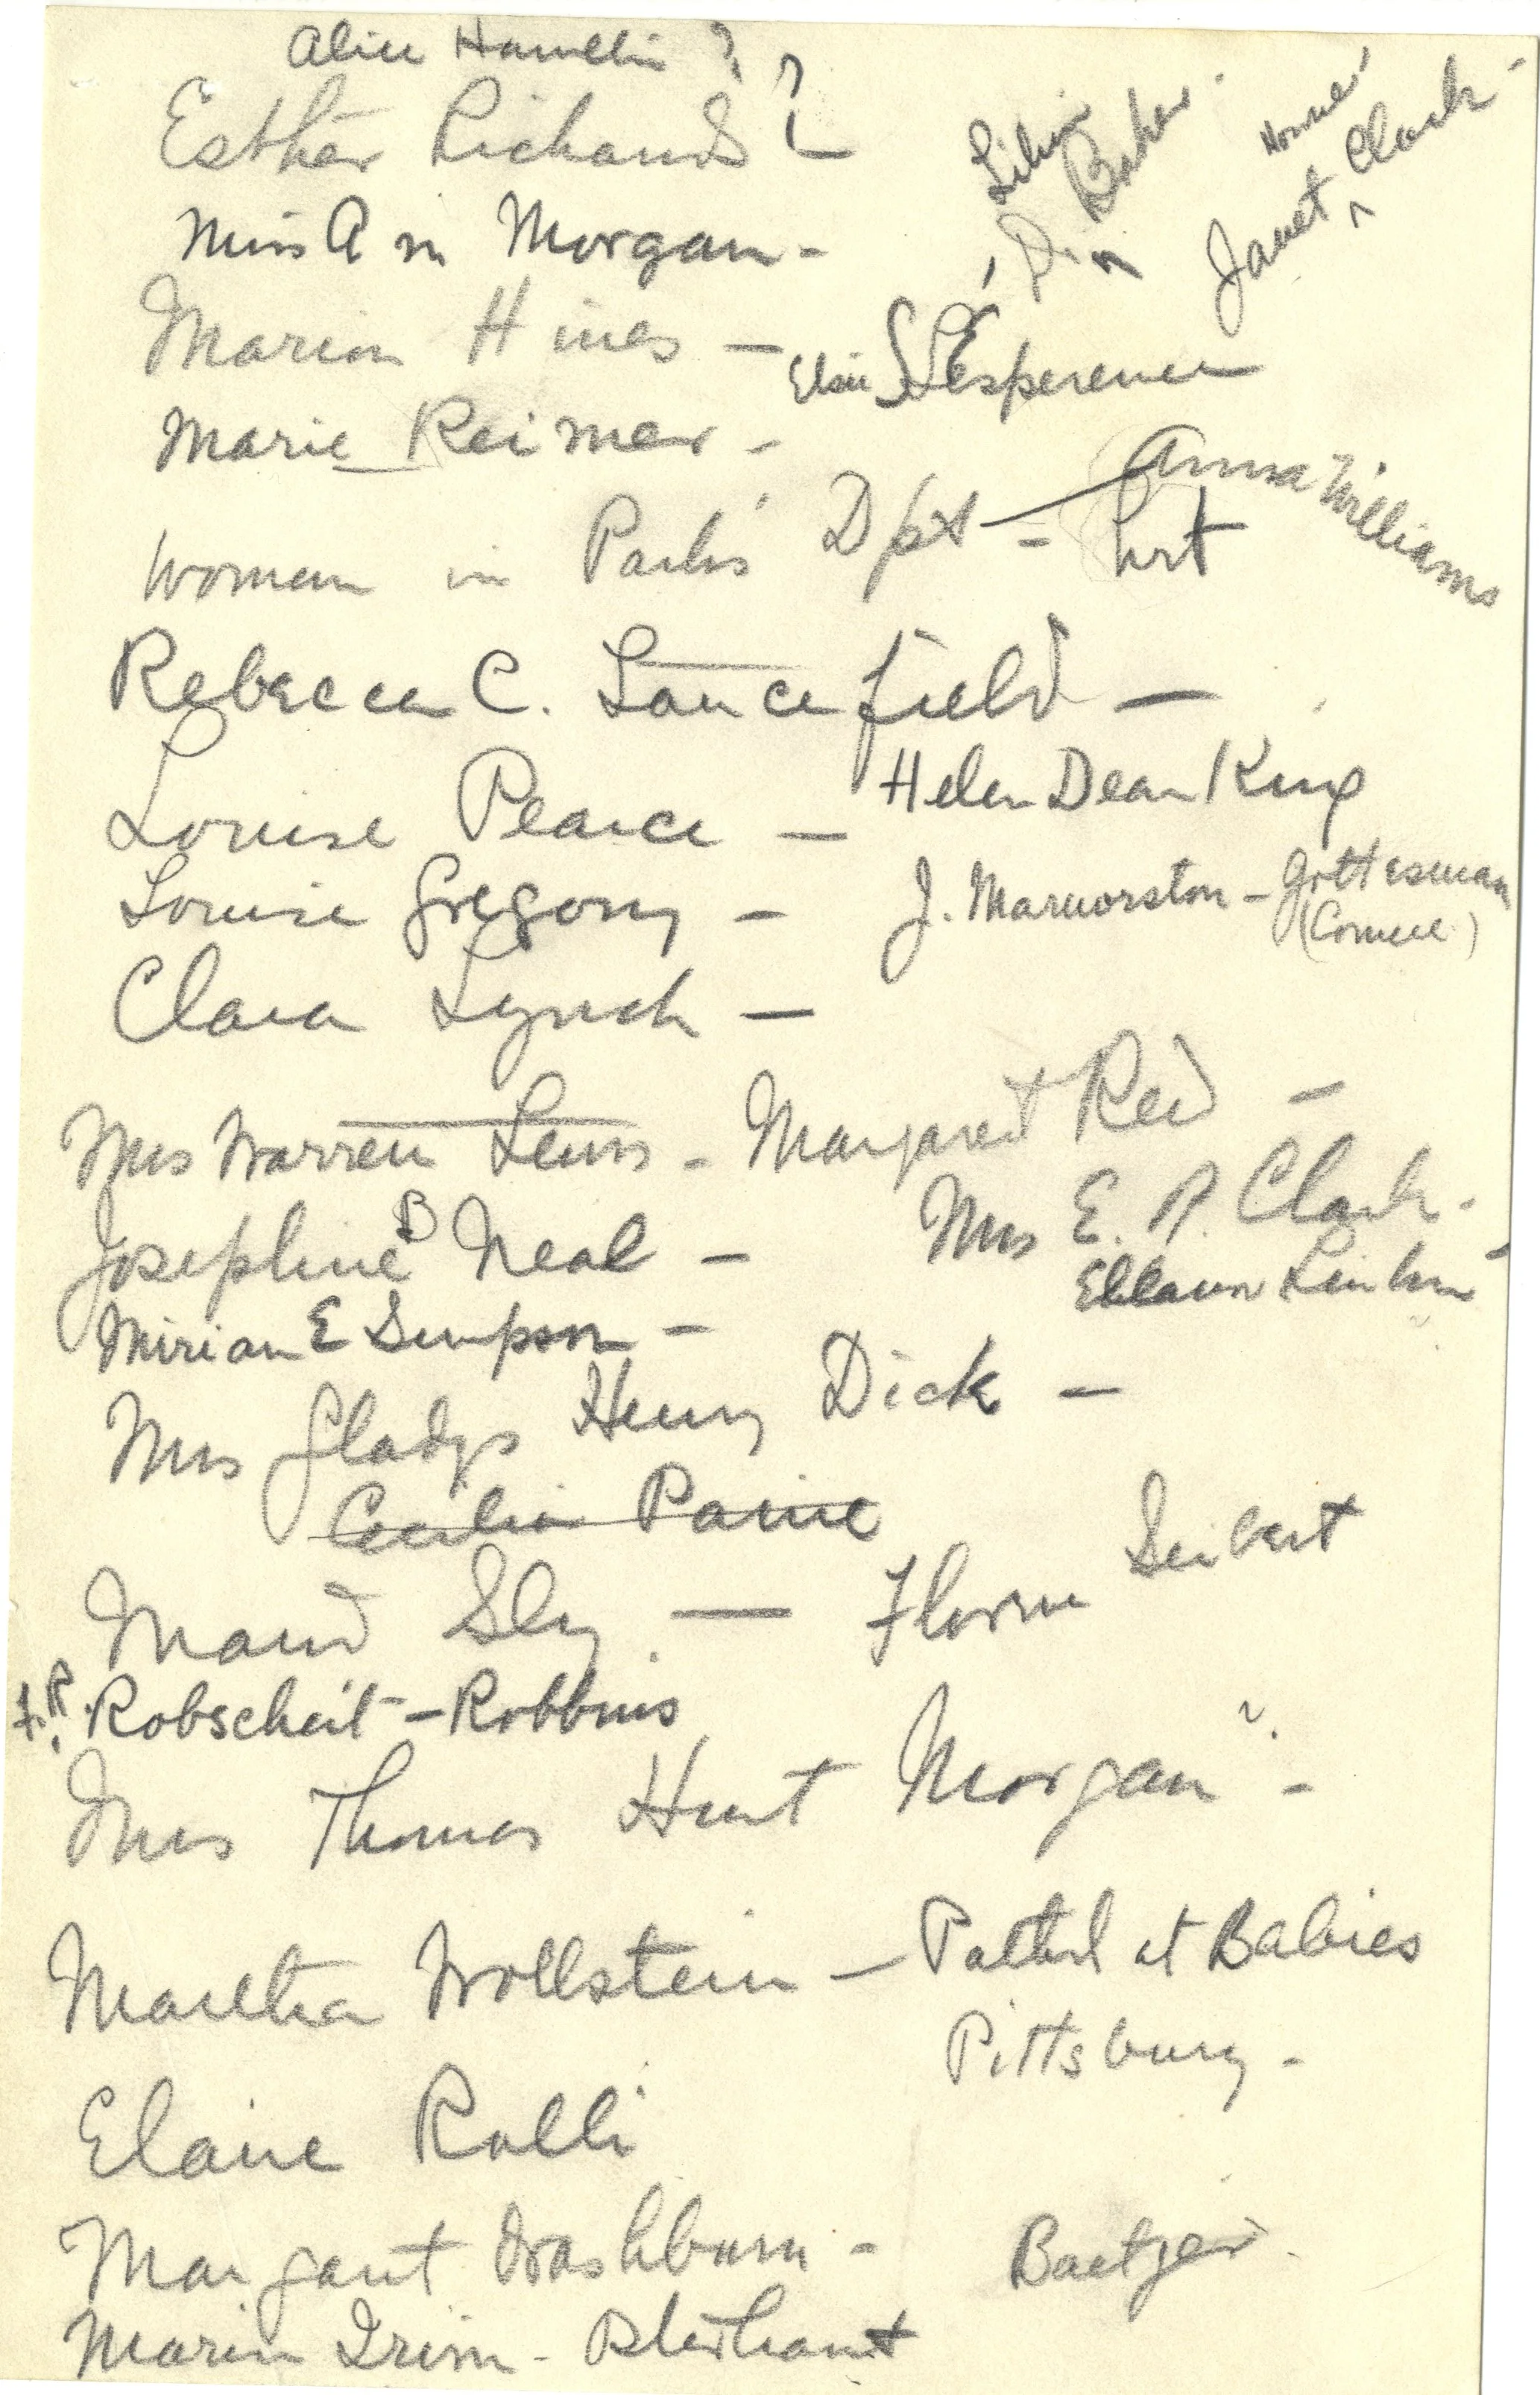 Alice Hamilton ?
Esther Richards ?
Miss A M Morgan -
Lillie
Dr Baker -
Janet Howell Clark -
Marion Hines —
Elsie S L'Esperence
Marie Reimer -
Woman in Park's Dpt — Anna Williams
Rebecca C. Lancefield —
Louise Pearce —
Helen Dean King
Louise Gregory —
J. Marmorston - Gottesman
(Cornell)
Clara Lynch —
Mrs Warren Lewis - Margaret Reed —
Josephine B Neal —
Mrs E. P. Clark -
Miriam E Simpson —
Mrs Gladys Henry Dick —
Cecilia Paine
Maud Sly —
Florence Seibert
F. R. Robscheit - Robbins
Mrs Thomas Hunt Morgan ? -
Martha Wollstein — Pathol at Babies
Pittsburg -
Elaine Ralli
Margaret Washburn -
Baetjer -